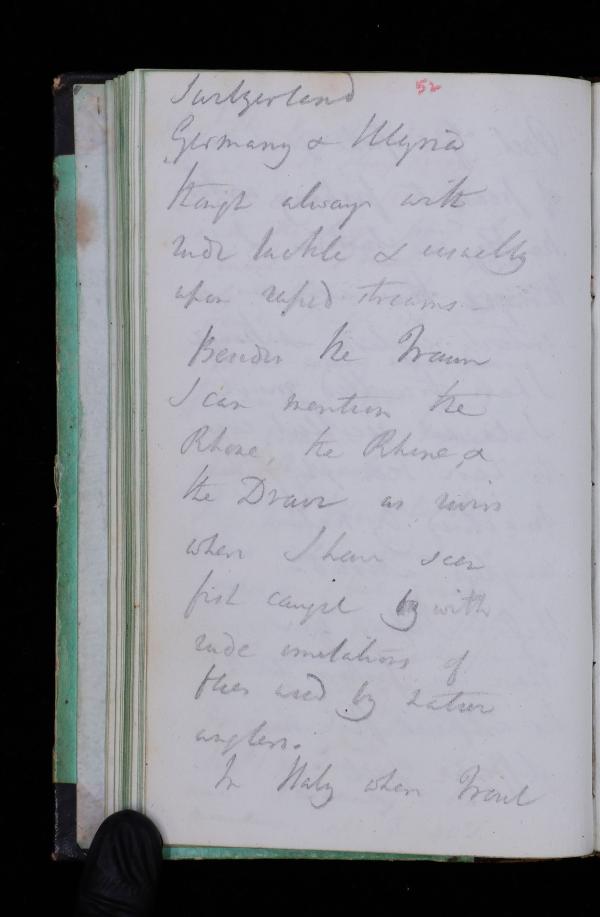 Switzerland 52
Germany & Illyria
though always with
rude tackle & usually
upon rapid streams -
Besides the Traun
I can mention the
Rhone, the Rhine, &
the Drave as rivers
where I have seen
fish caught by with
rude imitations of
flies used by native
anglers.
In Italy where Trout